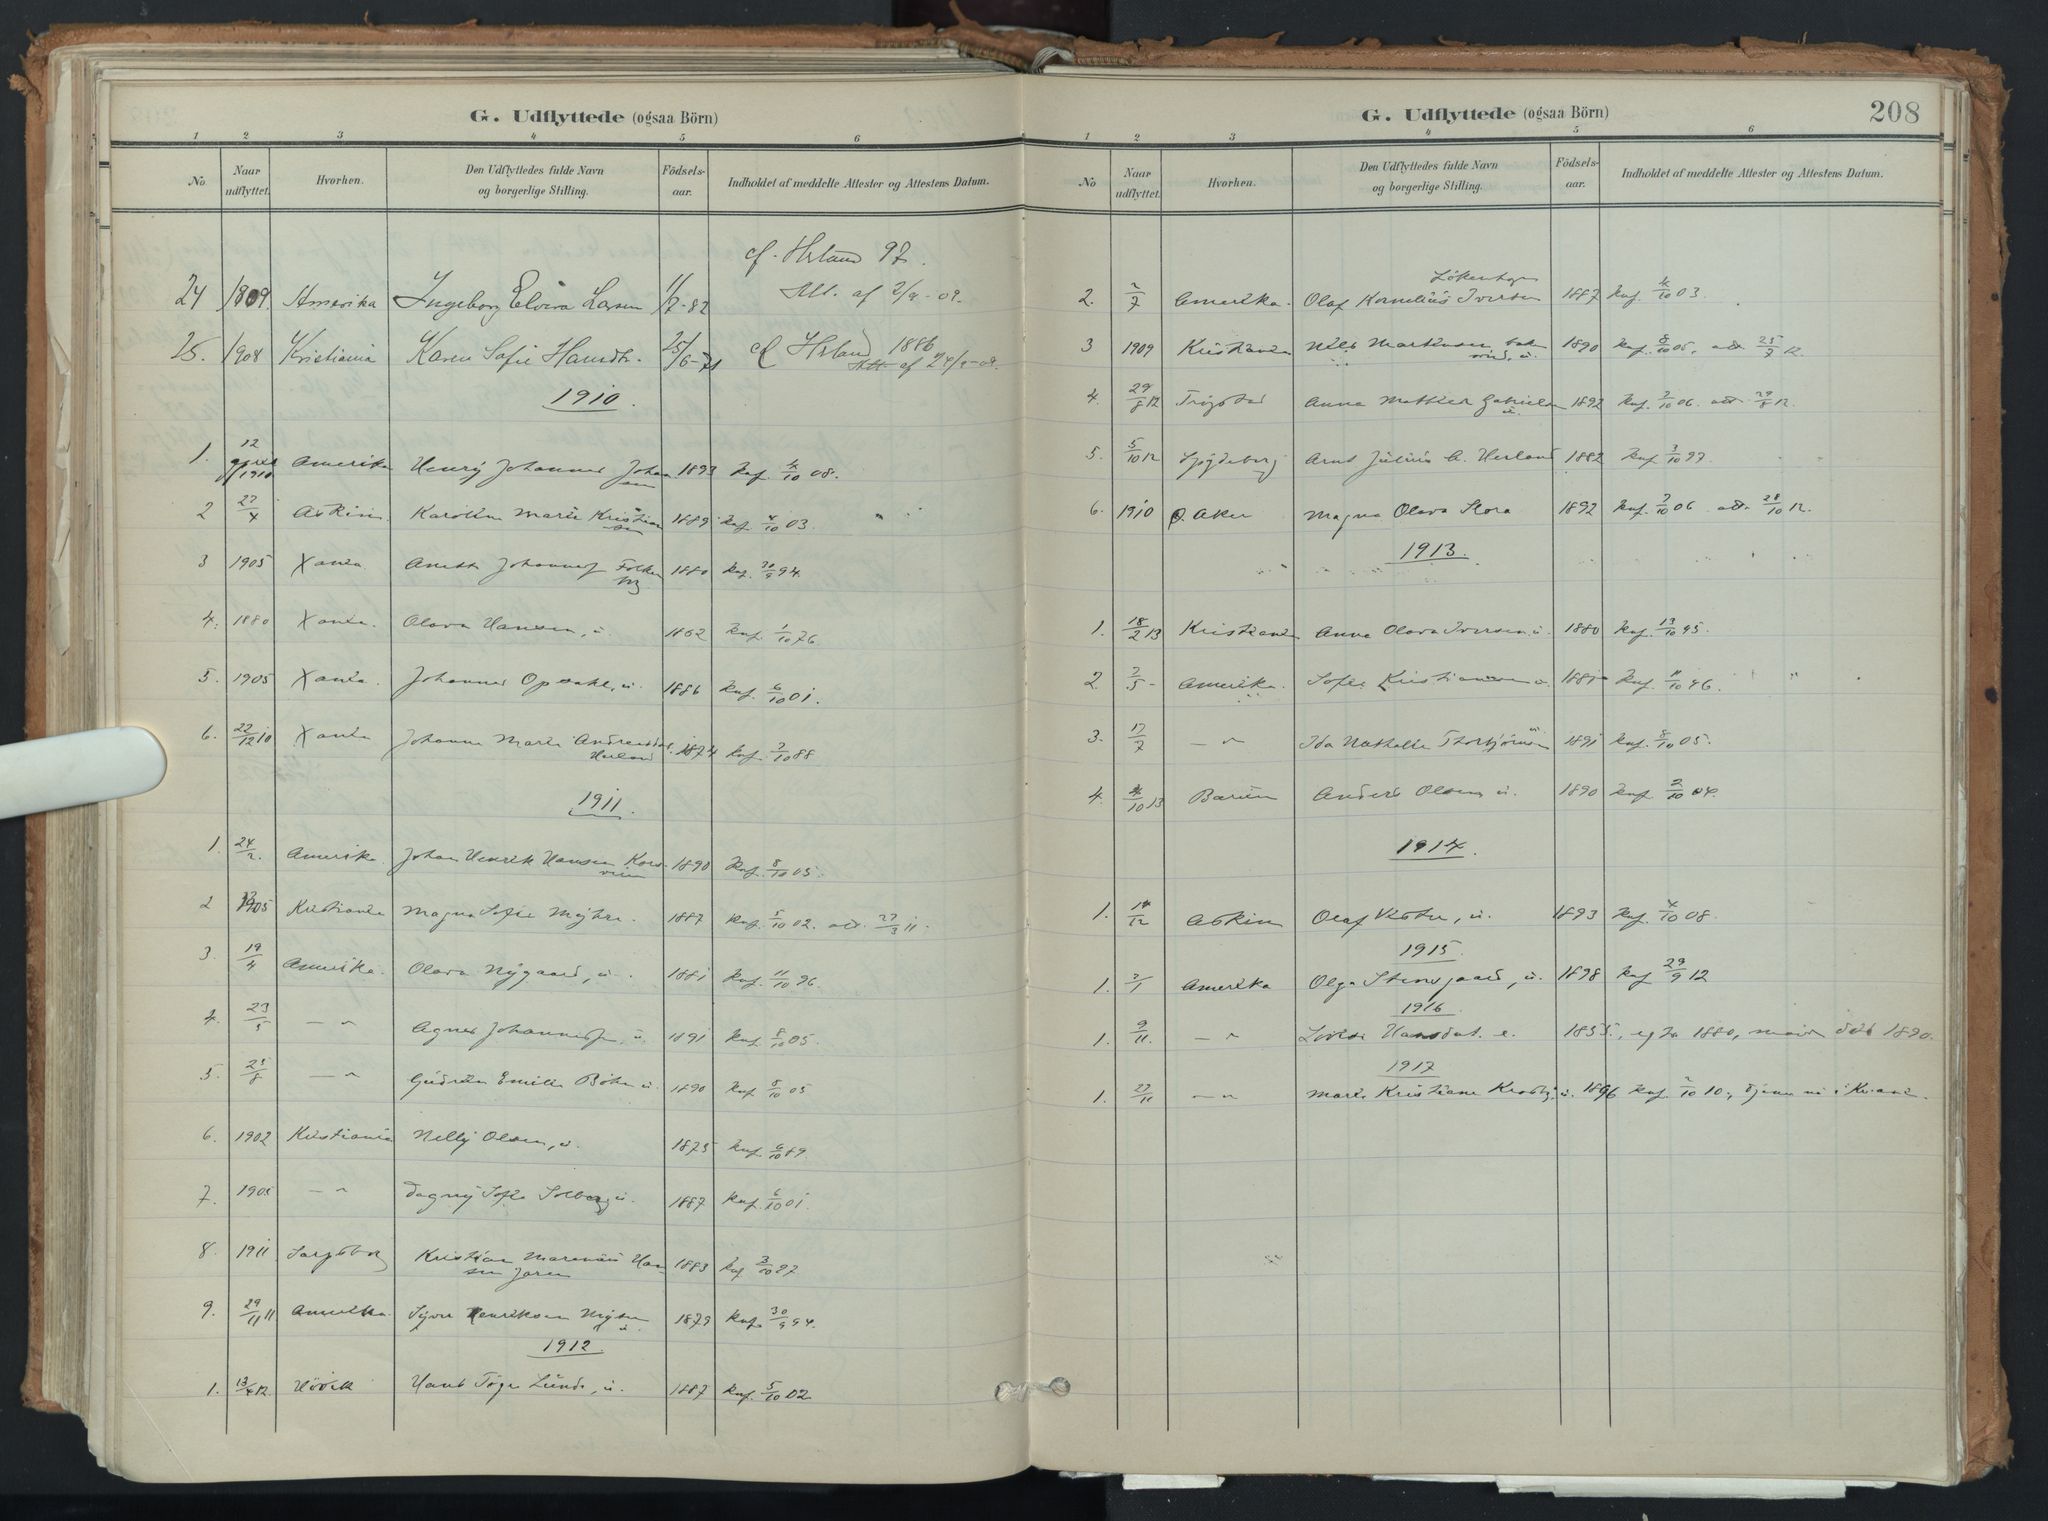 G. Udflyttede (ogsaa Börn)
1 2 3 4 5 6
No. Naar udflyttet. Hvorhen. Den Udflyttedes fulde Navn og borgerlige Stilling. Födsels-aar. Indholdet af meddelte Attester og Attestens Datum.
cf. Herland 97.
24 1909. Amerika Ingeborg Elvira Larsen 11/7-82 Att. af 2/9-09.
25. 1908 Kristiania Karen Sofie 25/6-71 cf Herland 1886
Att. af
1910.
1. 12 april 1910 Amerika Henry Johannes Johan
sen 1893 Konf. 4/10 08.
2 27/4 Askim. Karoline Marie Kristian
sen 1889 Konf. 4/10 03.
3 1905 Xania. Anette Johannesf 1880 Konf. 30/9 94.
4. 1880 Xania. Olava Hansen, u. 1862 Konf. 1/10 76.
5. 1905 Xania. Johannes Opsahl, u. 1886 Konf. 6/10 01.
6. 22/12 10 Xania Johanne Marie Andreasdat.
Herland 1874 Konf. 7/10 88
1911.
1. 24/2. Amerika. Johan Henrik Hansen Kors-
veien 1890 Konf. 8/10 05.
2 1905 Kristiania Magna Sofie Myhre. 1887 Konf. 5/10 02. att. 27/3 11.
3. 19/4 Amerika. Olava Nygaard, u. 1881 Konf. 11/10 96.
4. 23/5 — " Agnes Johannesen, u. 1891 Konf. 8/10 05.
5. 25/8 — " Gudrun Emilie Böhn u. 1890 Konf 8/10 05
6. 1902 Kristiania Nelly Olsen, u. 1875 Konf. 6/10 89.
7. 1905 — " Dagny Sofie Solberg u. 1887 Konf. 6/10 01.
8. 1911 Sarpsborg Kristian Marenius Han-
sen Jaren 1883 Konf 3/10 97
9. 29/11 11 Amerika. Syver Henriksen Myhre
u. 1879 Konf. 30/9 94.
1912.
1. 13/4 12 Hövik Hans Töger Lunde, u. 1887 Konf. 5/10 02
G. Udflyttede (ogsaa Börn) 208
1 2 3 4 5 6
No Naar udflyttet. Hvorhen. Den Udflyttedes fulde Navn og borgerlige Stilling. Födsels-aar. Indholdet af meddelte Attester og Attestens Datum.
Lökenhagen
2. 2/7 Amerika. Olaf Kornelius Iversen 1887 Konf. 4/10 03.
3 1909 Kristiania Nils Martinsen
u. 1890 Konf. 8/10 05. att. 25/7 12.
4. 29/8 12 Trögstad Anna Mathilde Gabrielsen
u. 1892 Konf. 7/10 06. att. 29/8 12.
5. 5/10 12 Spydeberg Arnt Julius A. Herland 1882 Konf 3/10 97.
6. 1910 Ö. Aker Magna Olava Skora 1892 Konf. 7/10 06. att. 28/10 12.
1913.
1. 18/2 13 Kristiania Anna Olava Iversen u. 1880 Konf. 13/10 95.
2. 7/5 - Amerika. Sofie Kristiansen u. 1881 Konf. 11/10 96.
3. 17/7 — " Ida Nathalie Thorbjörnsen
u. 1891 Konf. 8/10 05.
4. 4/10 13 Bærum Anders Olsen, u. 1890 Konf. 2/10 04.
1914.
1. 14/12 Askim Olaf Vister, u. 1893 Konf. 4/10 08.
1915.
1. 7/1 Amerika Olga Stensgaard, u. 1898 Konf 29/9 12
1916
1. 9/11. — " Lovise Hansdat. e. 1855, egt. 1880, mand död 1890.
1917
1. 27/11 — " Marie Kristiane Krosby. u. 1896 Konf. 2/10 10., tjener nu i Kr.ania.